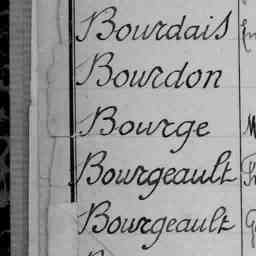 Bourdais
Bourdon
Bourge
Bourgeault
Bourgeault